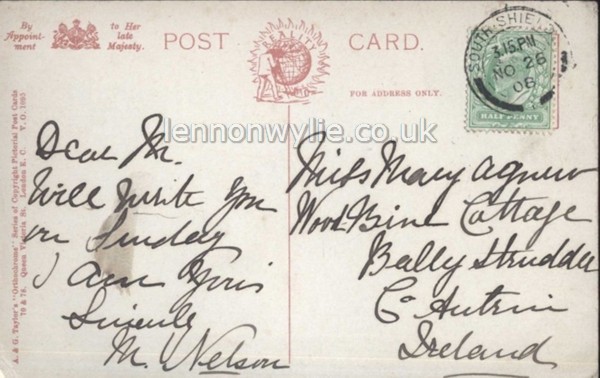 By
Appoint-
ment
to Her
late
Majesty.
POST CARD.
REALITY
FOR ADDRESS ONLY.
SOUTH SHIELDS
3.15 PM
NO 26
08
HALF PENNY
lennonwylie.co.uk
A. & G. Taylor's "Orthochrome" Series of Copyright Pictorial Post Cards
70 & 78, Queen Victoria St. London E.C. V.O. 1895
Dear M.
Will write you
on Sunday
I am Yours
Sincerely
M. Nelson
Miss Mary Agnew
Wood Bine Cottage
Ballystrudder
Co Antrim
Ireland